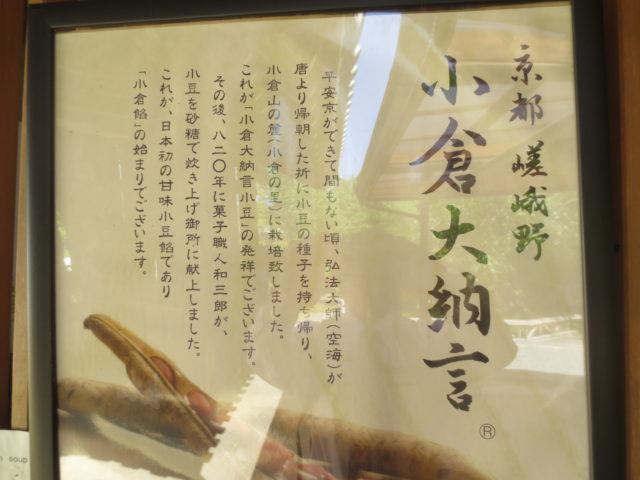 京都 嵯峨野
小倉大納言®
平安京ができて間もない頃、弘法大師(空海)が
唐より帰朝した折に小豆の種子を持ち帰り、
小倉山の麓(小倉の里)に栽培致しました。
これが「小倉大納言小豆」の発祥でございます。
その後、八二〇年に菓子職人和三郎が、
小豆を砂糖で炊き上げ御所に献上しました。
これが、日本初の甘味小豆餡であり
「小倉餡」の始まりでございます。
soup